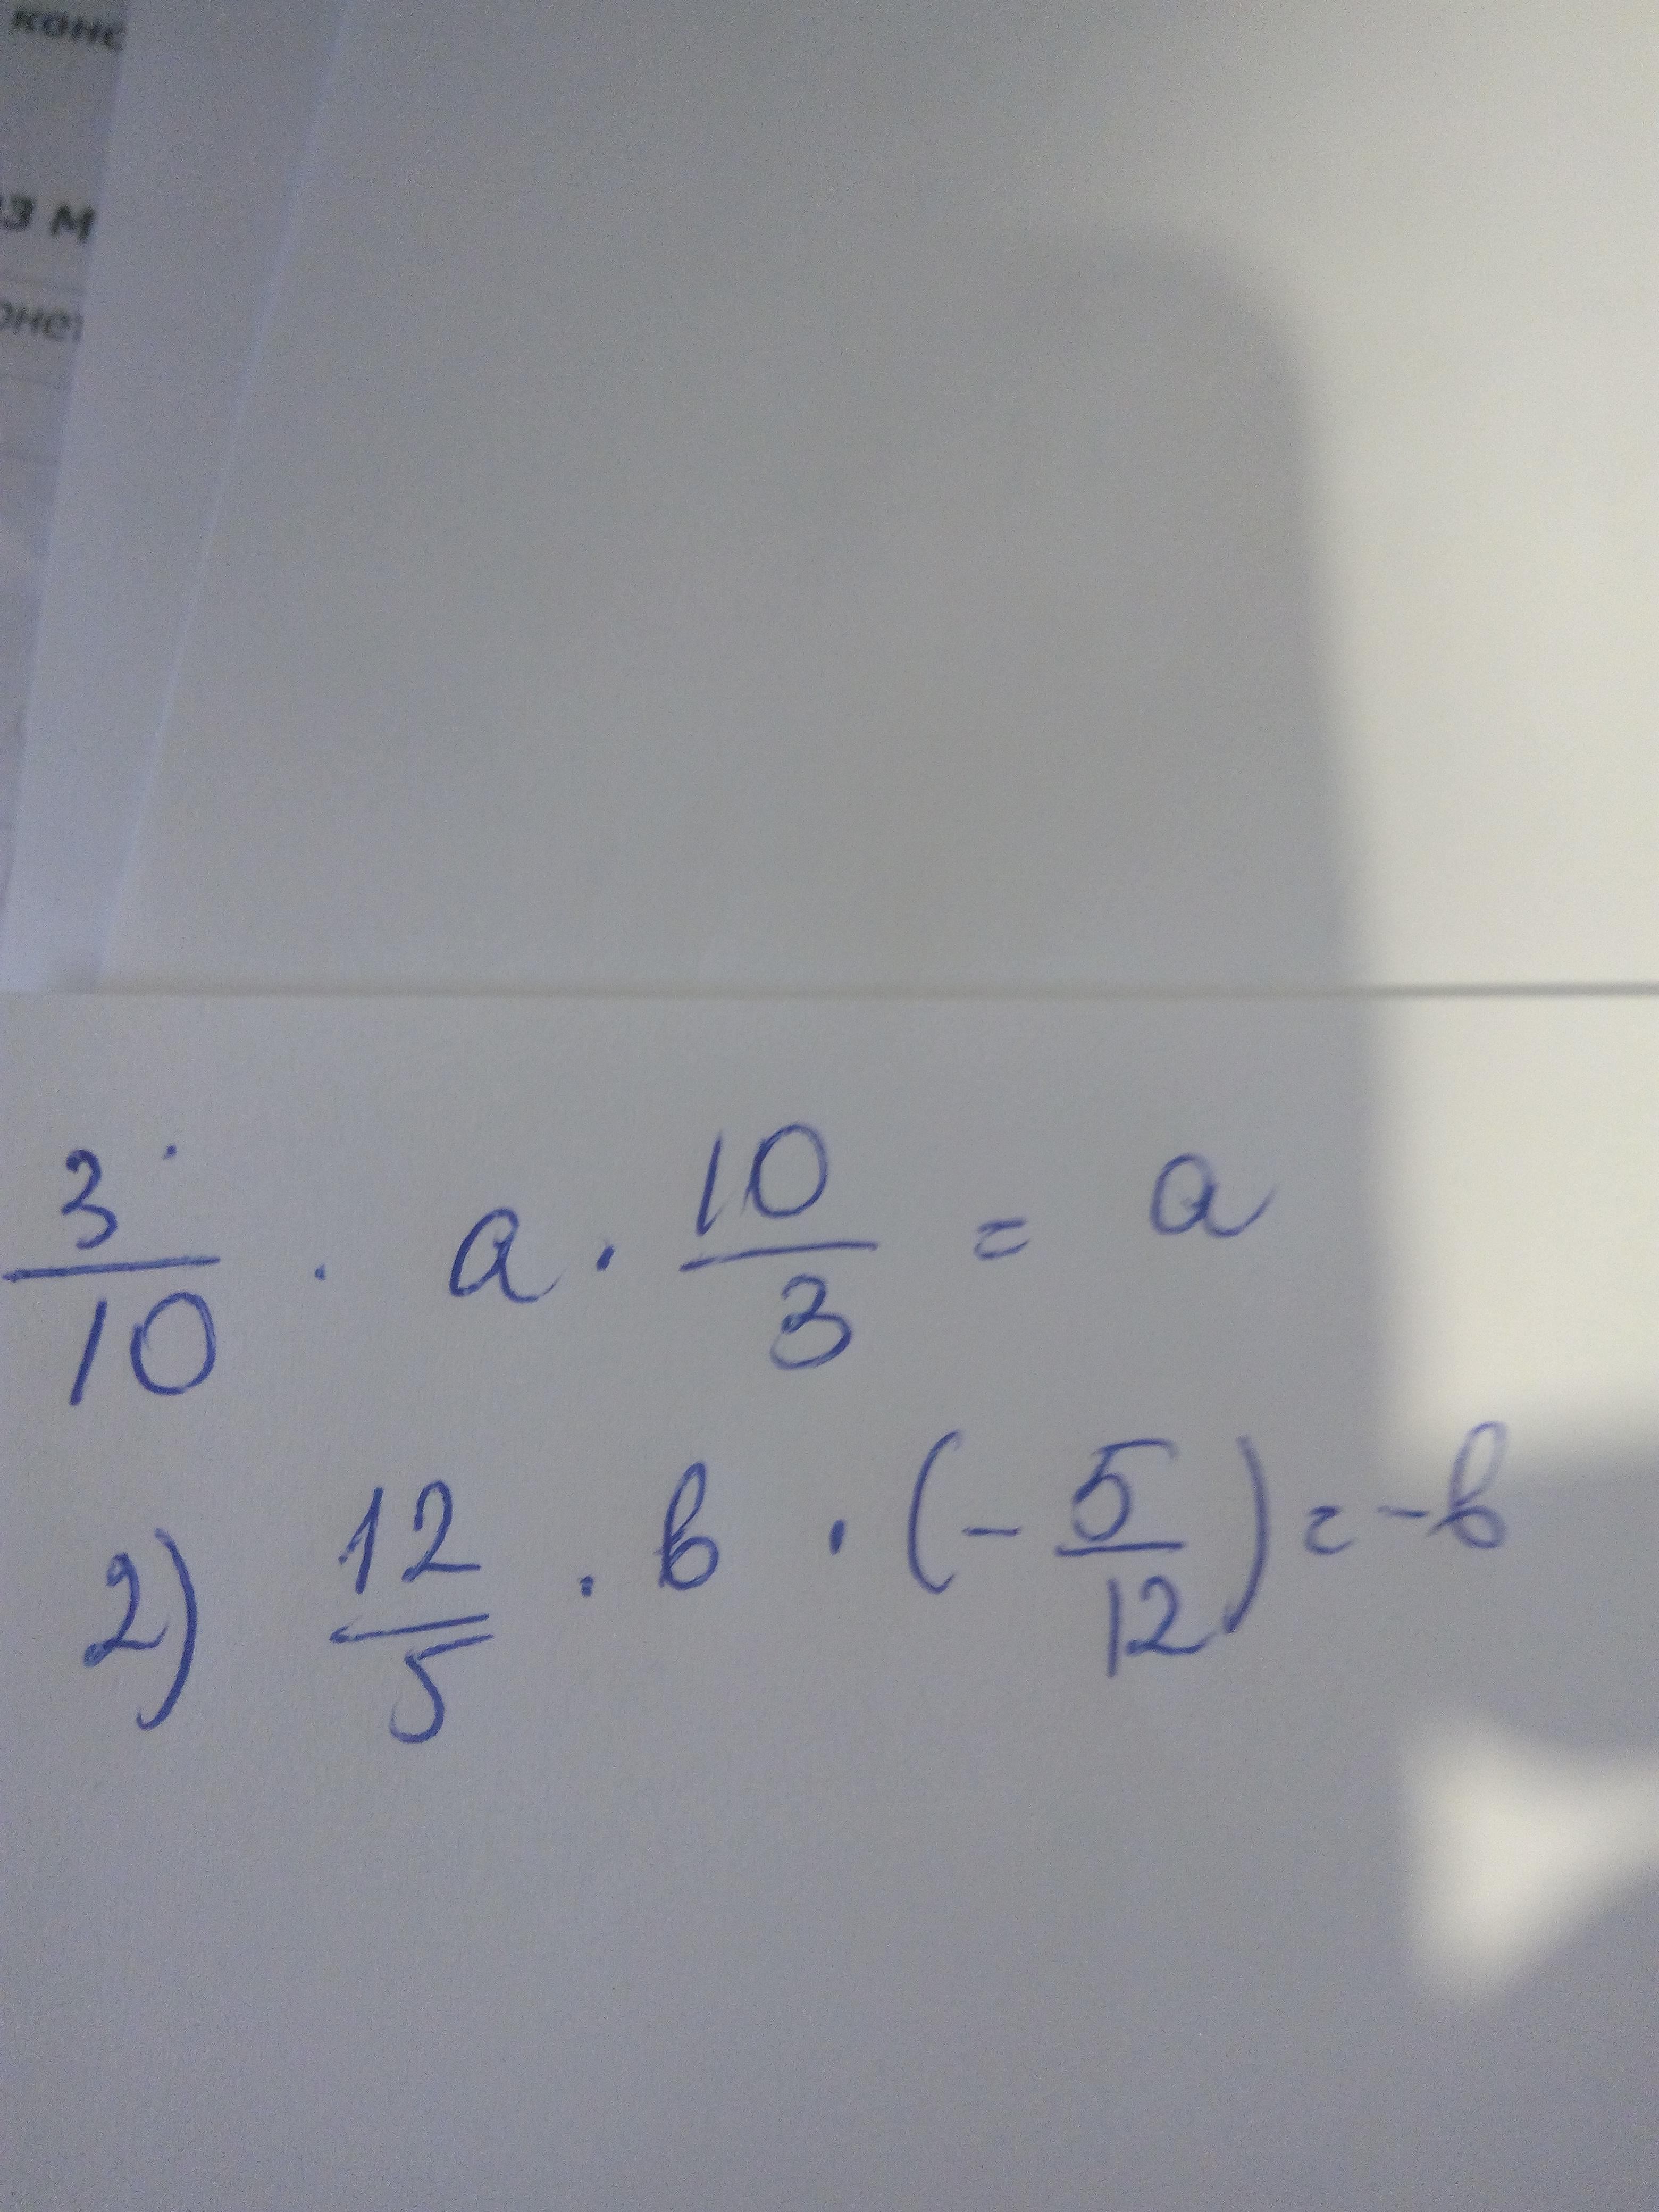 конс
оз м
онет
3/10 · a · 10/3 = a
2) 12/5 · b · (- 5/12) = -b